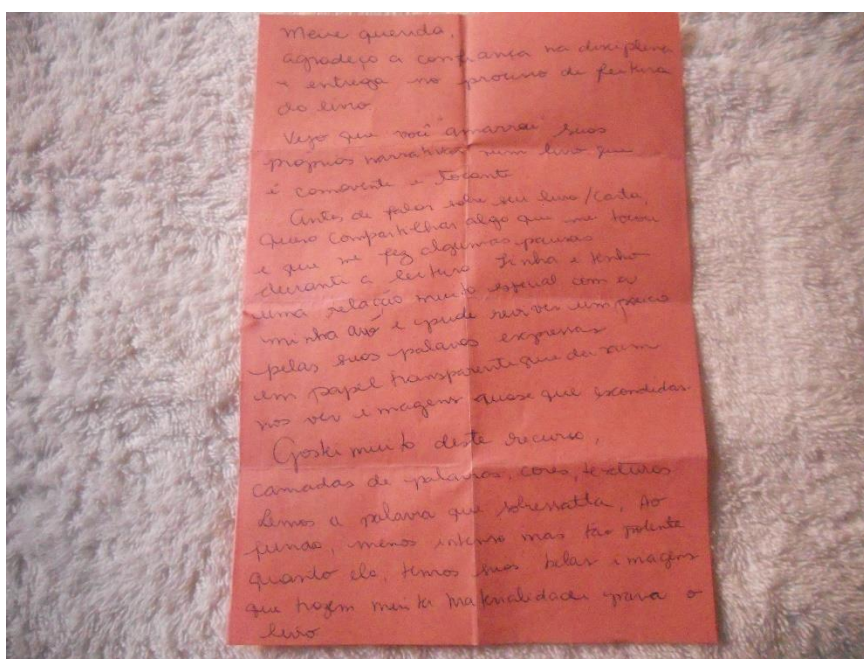 Meire querida,
agradeço a confiança na disciplina
e entrega no processo de leitura
do livro.
Vejo que você "amarrou" suas
próprias narrativas num livro que
é comovente e tocante.
Antes de falar sobre seu livro/carta,
quero compartilhar algo que me tocou
e que me fez algumas pausas
durante a leitura. Tinha e tenho
uma relação muito especial com a
minha avó e pude reviver um pouco
pelas suas palavras expressas
em papel transparente que deixam
nos ver imagens quase que escondidas.
Gostei muito deste recurso,
camadas de palavras, cores, texturas
Lemos a palavra que sobressalta. Ao
fundo, menos intenso mas tão potente
quando ela, temos suas belas imagens
que trazem muita materialidade para o
livro